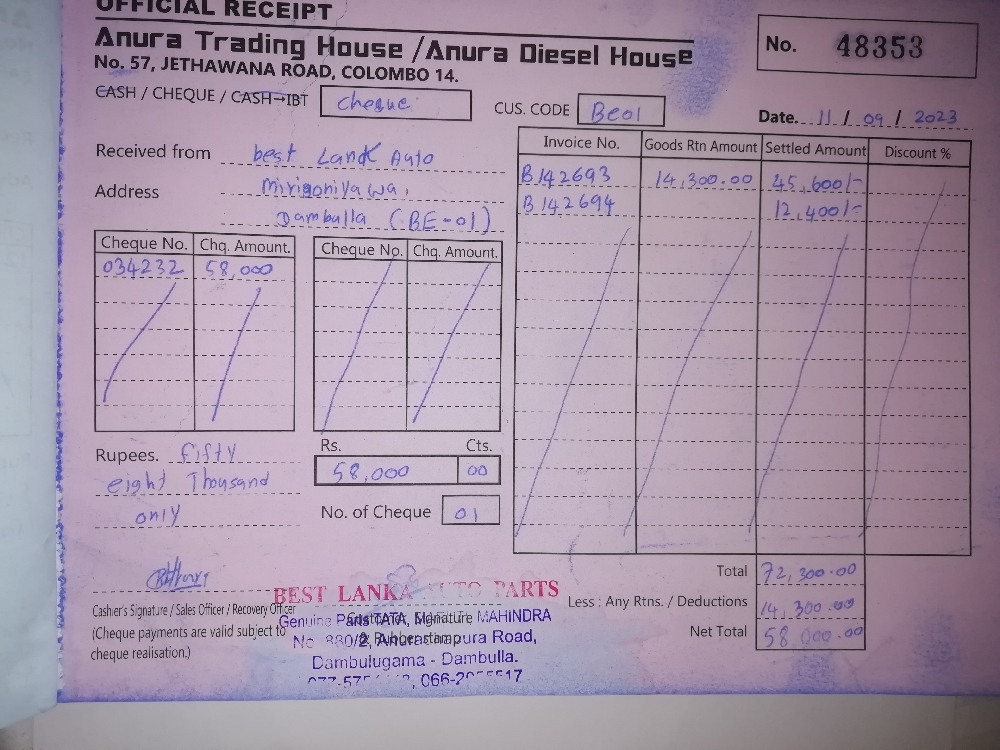 OFFICIAL RECEIPT
Anura Trading House / Anura Diesel House
No. 57, JETHAWANA ROAD, COLOMBO 14.
No. 48353
CASH / CHEQUE / CASH→IBT cheque
CUS. CODE Be01
Date. 11 / 09 / 2023
Received from best Lank Auto
Address Mirigoniyawa,
Damballa (BE-01)
Invoice No. Goods Rtn Amount Settled Amount Discount %
B142693 14,300.00 45,600/-
B142694 12,400/-
Cheque No. Chq. Amount. Cheque No. Chq. Amount.
034232 58,000
Rupees. fifty
eight Thousand
only
Rs. Cts.
58,000 00
No. of Cheque 01
Total 72,300.00
Less : Any Rtns. / Deductions 14,300.00
Net Total 58,000.00
Cashier's Signature / Sales Officer / Recovery Officer
(Cheque payments are valid subject to
cheque realisation.)
BEST LANKA AUTO PARTS
Genuine Parts TATA, MAHINDRA
Anuradhapura Road,
Dambulugama - Dambulla.